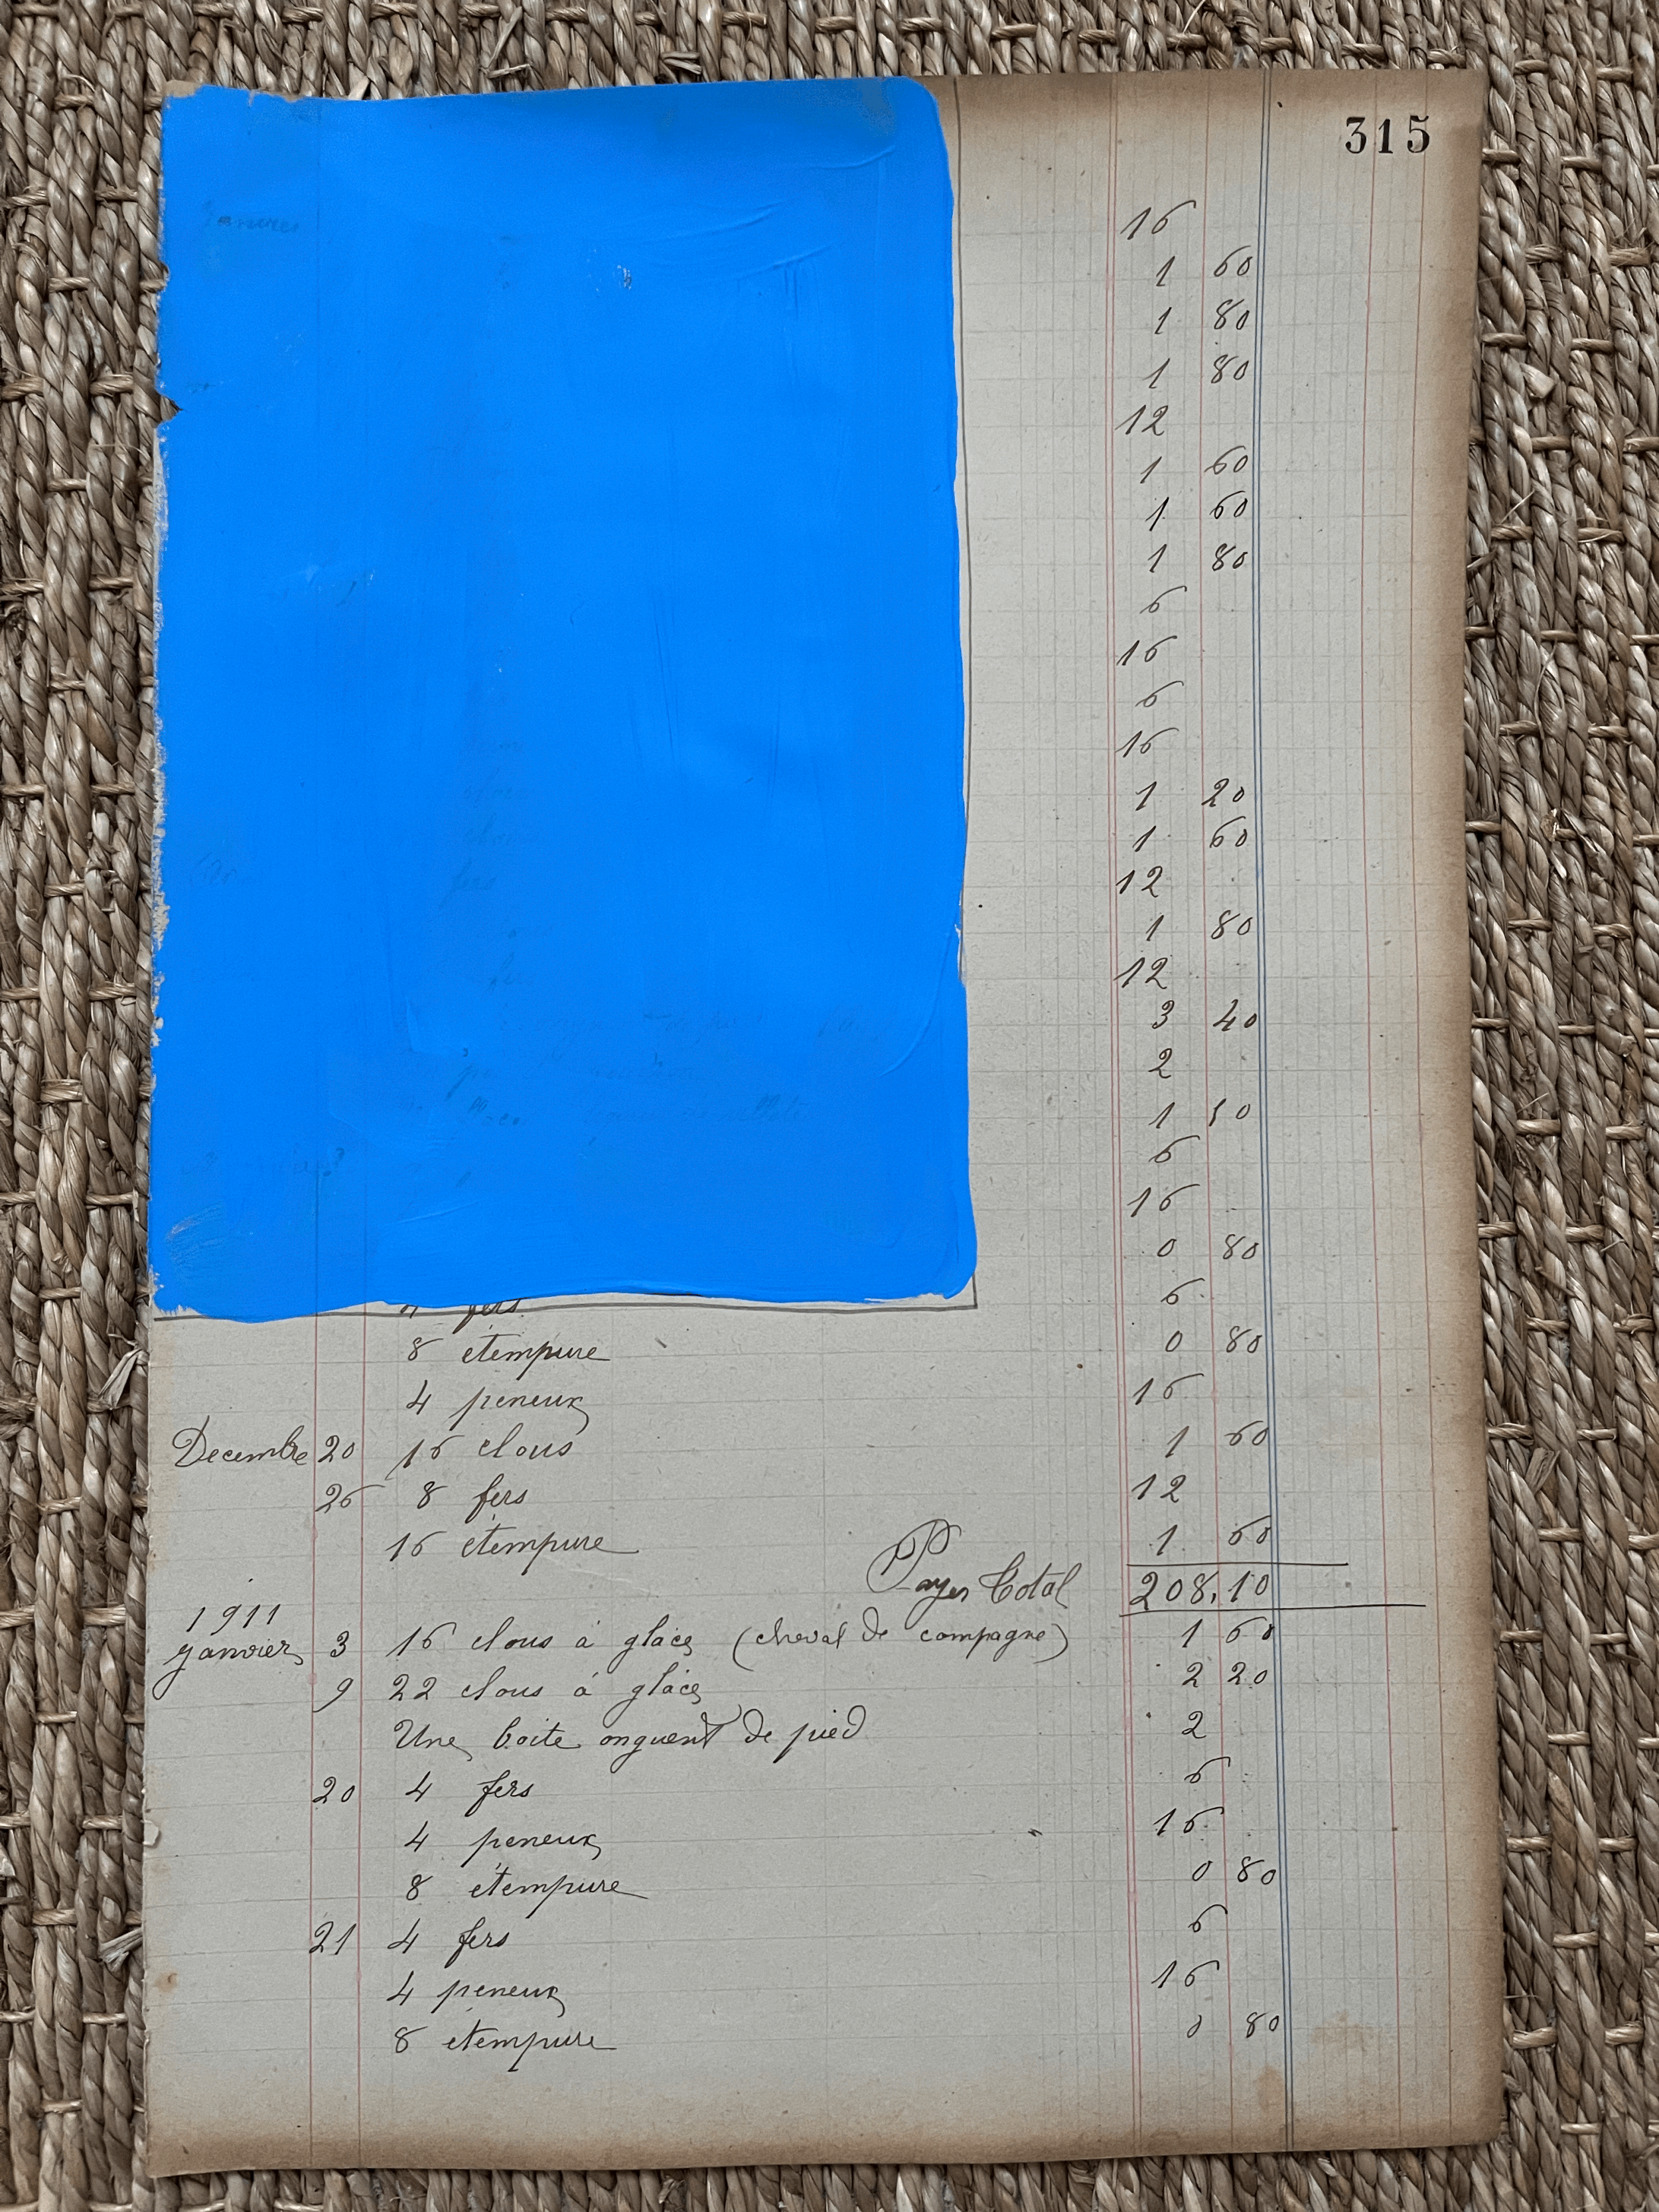 315
16
1 60
1 80
1 80
12
1 60
1 60
1 80
6
16
6
16
1 20
1 60
12
1 80
12
3 40
2
1 50
6
16
0 80
4 fers 6
8 etempure 0 80
4 peneux 16
Decembre 20 16 clous 1 60
26 8 fers 12
16 etempure 1 60
Payer Total 208,10
1911
Janvier 3 16 clous à glace (cheval de compagne) 1 60
9 22 clous à glace 2 20
Une boite onguent de pied 2
20 4 fers 6
4 peneux 16
8 etempure 0 80
21 4 fers 6
4 peneux 16
8 etempure 0 80